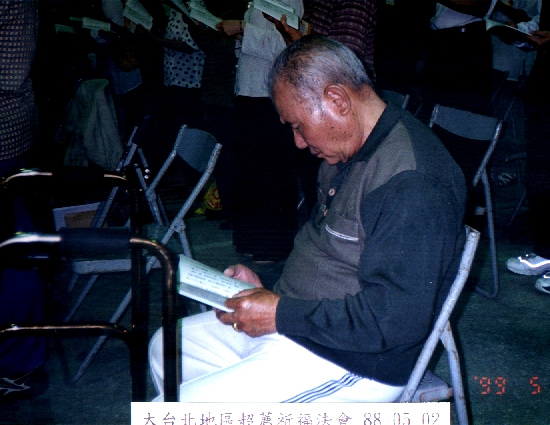 '99 5
大台北地區超薦祈福法會 88 05 02